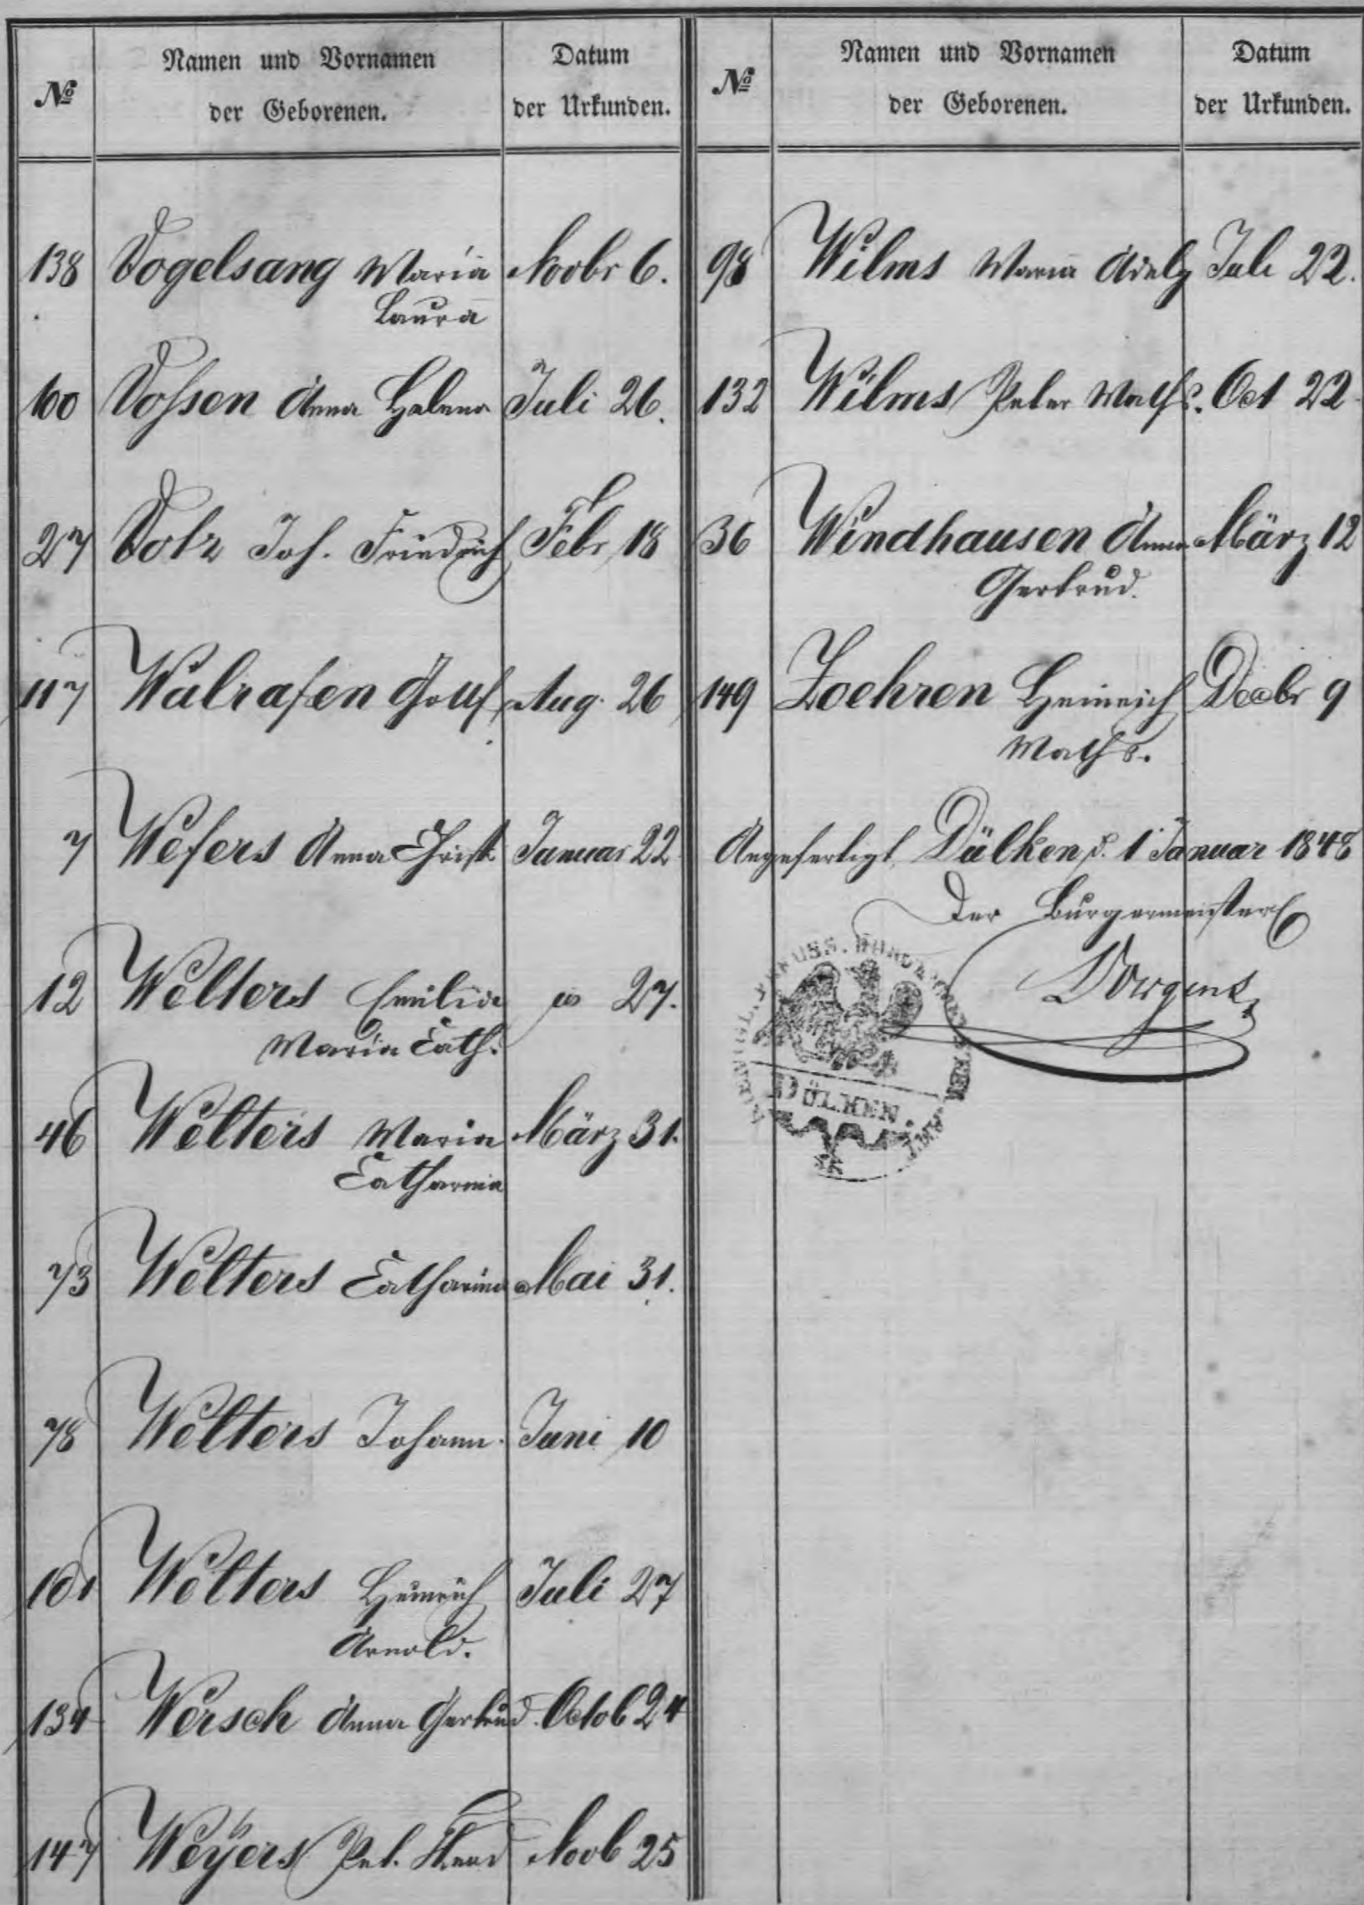 № Namen und Vornamen der Geborenen. Datum der Urkunden.
138 Vogelsang Maria Novbr 6.
Laura
100 Vossen Anna Helena Juli 26.
27 Volz Joh. Friedrich Febr 18
117 Walrafen Aug. 26
7 Wefers Anna Christ Januar 22
12 Welters Emilia 27.
Maria Cath.
46 Welters Maria März 31.
Catharina
73 Welters Catharina Mai 31.
78 Welters Johann. Juni 10
101 Welters Heinrich Juli 27
Arnold.
134 Wersch Anna Gertrud. Octob 24
147 Weyers Pet. Novb 25
№ Namen und Vornamen der Geborenen. Datum der Urkunden.
98 Wilms Maria Juli 22.
132 Wilms Peter Maths. Oct 22
36 Windhausen Anna März 12
Gertrud.
149 Zoehren Heinrich Decbr 9
Maths.
Angefertigt Dülken d. 1 Januar 1848
Der Bürgermeister
DÜLKEN.